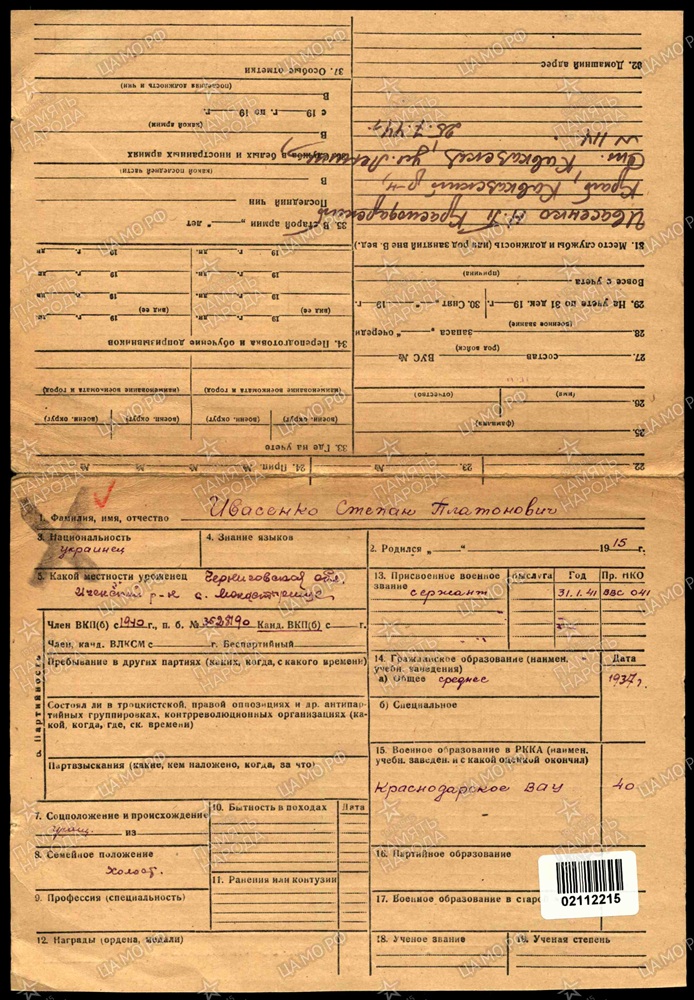 1. Фамилия, имя, отчество Ивасенко Степан Платонович
3. Национальность
украинец
4. Знание языков
2. Родился „ “ 1915 г.
5. Какой местности уроженец Черниговская обл.
с.
13. Присвоенное военное звание
выслуга
Год
Пр. НКО
сержант 31.1.41 ВВС 041
6. Партийность
Член ВКП(б) с 1940 г., п. б. № Канд. ВКП(б) с г.
Член, канд. ВЛКСМ с г. Беспартийный
Пребывание в других партиях (каких, когда, с какого времени)
14. Гражданское образование (наимен. учебн. заведения)
Дата
а) Общее среднее 1937 г.
б) Специальное
Состоял ли в троцкистской, правой оппозициях и др. антипар-
тийных группировках, контрреволюционных организациях (ка-
кой, когда, где, ск. времени)
Партвзыскания (какие, кем наложено, когда, за что)
15. Военное образование в РККА (наимен.
учебн. заведен. и с какой оценкой окончил)
Краснодарское ВАУ 40
7. Соцположение и происхождение
из
10. Бытность в походах
Дата
8. Семейное положение
холост.
11. Ранения или контузии
16. Партийное образование
9. Профессия (специальность)
17. Военное образование в стар
12. Награды (ордена, медали)
18. Ученое звание
19. Ученая степень
02112215
22.
23.
24. Прип. № № №
25.
(фамилия)
26.
(имя)
(отчество)
27. состав ВУС №
(род войск)
28. запаса „ “ очереди
(военное звание)
29. На учете по 31 дек. 19 г.
30. Снят „ “ 19 г.
Вовсе с учета
(причина)
31. Место службы и должность (или род занятий вне В. вед.)
Ивасенко Н. П. Краснодарский
Край, Кавказский р-н,
ст. Кавказская, ул. Ленина
N 114. 25.7.44 г.
32. Домашний адрес
33. Где на учете
(военн. округ) (военн. округ) (военн. округ) (военн. округ)
(наименование военкомата и город) (наименование военкомата и город)
34. Переподготовка и обучение допризывников
19 г. дн 19 г. дн
(вид ее) (вид ее)
19 г. дн 19 г. дн
19 г. дн 19 г. дн
19 г. дн 19 г. дн
35. В старой армии „ “ лет
Последний чин
В
(какой последней части)
36. Служба в белых и иностранных армиях
В
(какой армии)
с 19 г. по 19 г.
В
(последняя должность и чин)
37. Особые отметки
ЦАМО РФ
ПАМЯТЬ НАРОДА